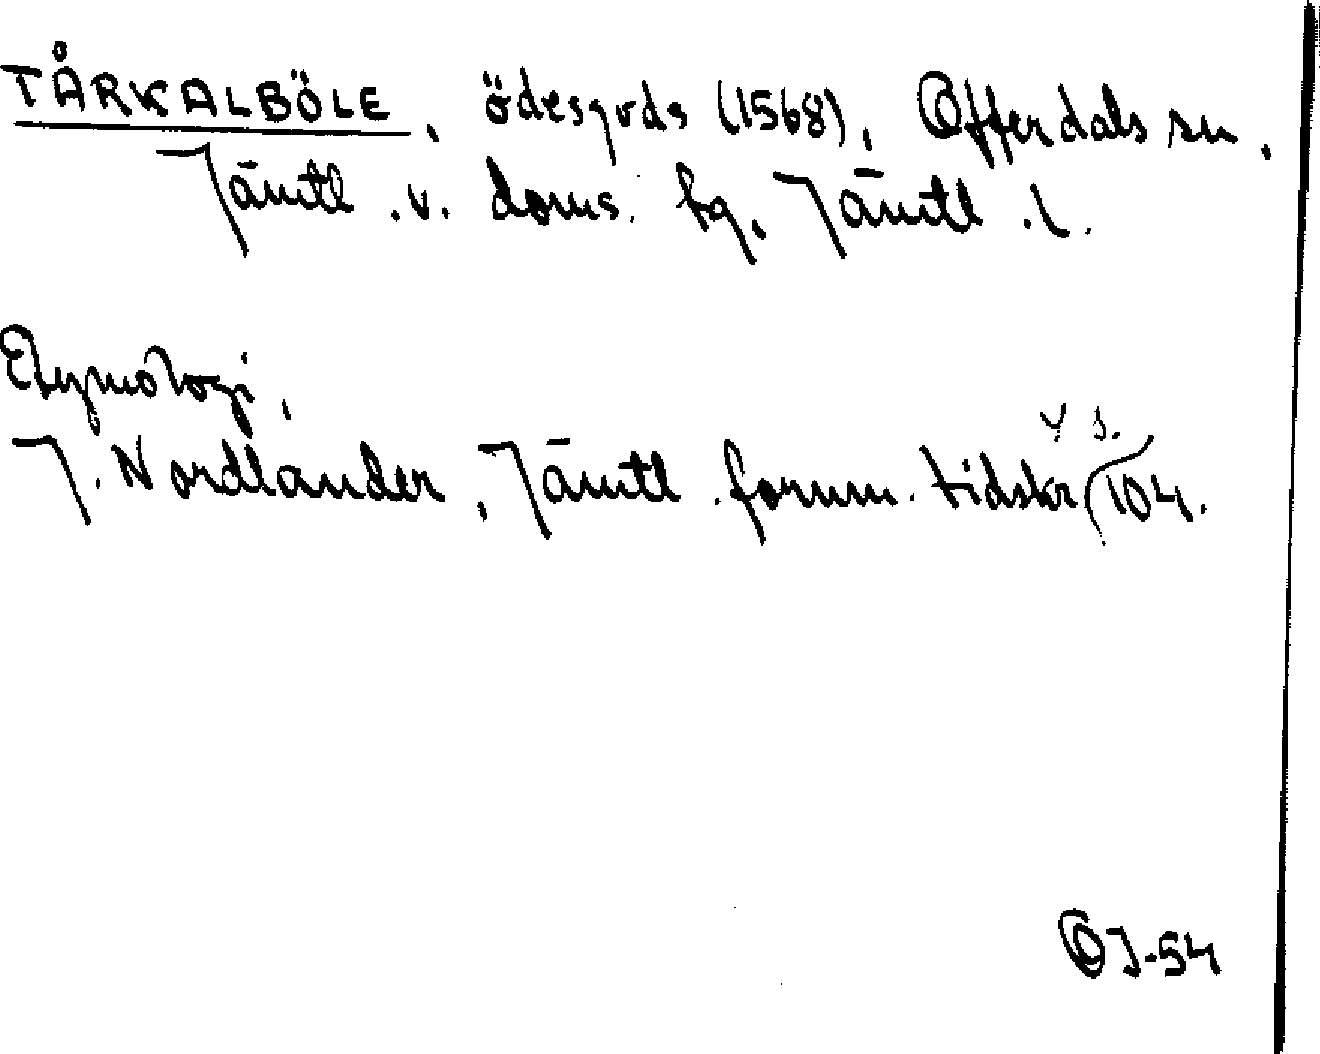 TÅRKALBÖLE, ödesgrds (1568), Offerdals sn,
Jämtl. v. doms. fg, Jämtl. l.
Etymologi,
J. Nordlander, Jämtl. fornm. tidskr V s. 104.
OJ-54